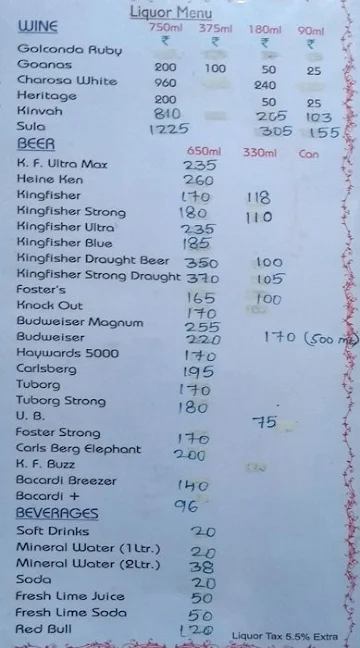 Liquor Menu
WINE 750ml 375ml 180ml 90ml
₹ ₹ ₹ ₹
Golconda Ruby
Goanas 200 100 50 25
Charosa White 960 240
Heritage 200 50 25
Kinvah 810 205 103
Sula 1225 305 155
BEER 650ml 330ml Can
K. F. Ultra Max 235
Heine Ken 260
Kingfisher 170 118
Kingfisher Strong 180 110
Kingfisher Ultra 235
Kingfisher Blue 185
Kingfisher Draught Beer 350 100
Kingfisher Strong Draught 370 105
Foster's 165 100
Knock Out 170
Budweiser Magnum 255
Budweiser 220 170 (500 ml)
Haywards 5000 170
Carlsberg 195
Tuborg 170
Tuborg Strong 180
U. B. 75
Foster Strong 170
Carls Berg Elephant 200
K. F. Buzz
Bacardi Breezer 140
Bacardi + 96
BEVERAGES
Soft Drinks 20
Mineral Water (1Ltr.) 20
Mineral Water (2Ltr.) 38
Soda 20
Fresh Lime Juice 50
Fresh Lime Soda 50
Red Bull 120
Liquor Tax 5.5% Extra